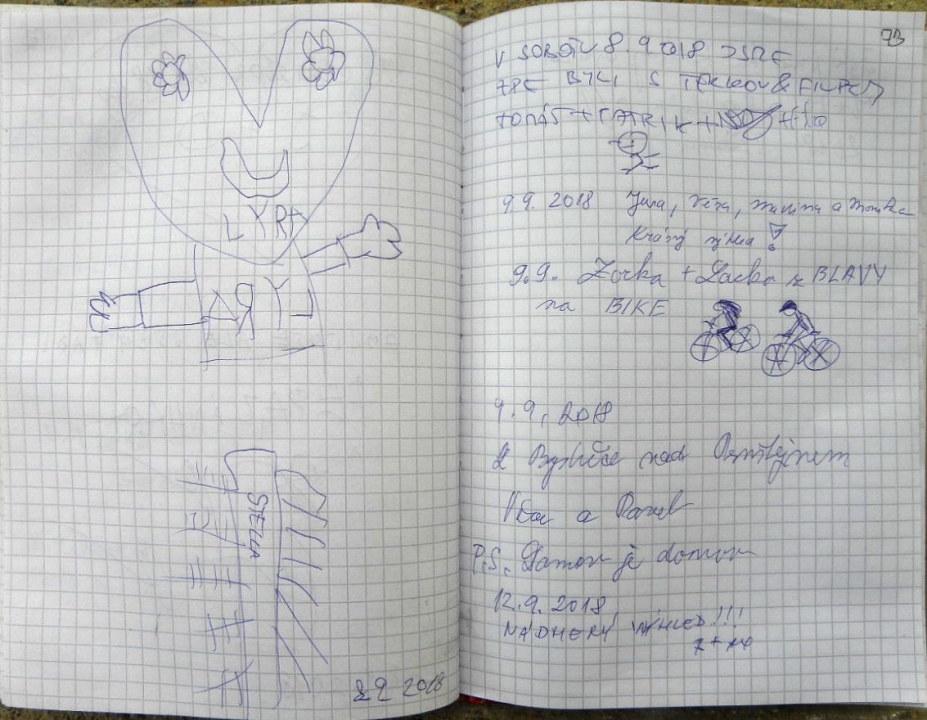 LYRA
LYRA
STELLA
8.9 2018
73
V SOBOTU 8.9 2018 JSME
ZDE BYLI S
TOMÁŠ + PATRIK +
9.9. 2018 Jura, Věra, a Monika
Krásný výhled!
9.9. Zorka + Lacko z BLAVY
na BIKE
9.9. 2018
Z Bystřice nad Pernštejnem
a Pavel
P.S. Damon je domov
12.9.2018
NÁDHERNÝ VÝHLED!!!